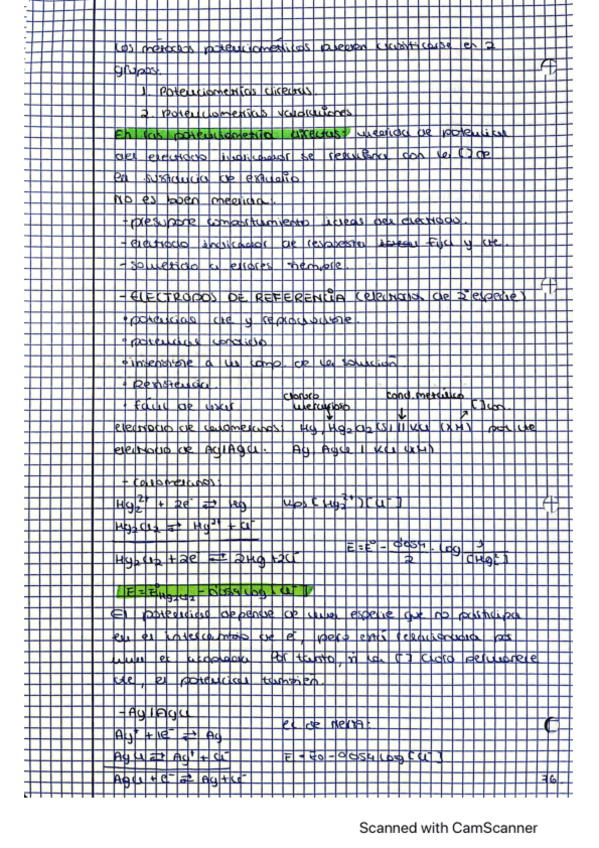 Los métodos potenciométricos pueden clasificarse en 2
grupos.
1. Potenciometrías directas
2. Potenciometrías valoraciones
En las potenciometría directas: medida de potencial
del electrodo indicador se relaciona con la [] de
la sustancia de estudio
No es buen medida:
- presupone comportamiento ideal del electrodo.
- electrodo indicador de respuesta fija y cte.
- sometido a errores siempre.
- ELECTRODOS DE REFERENCIA (electrodos de 2ª especie)
• potencial cte y reproducible.
• potencial conocido
• insensible a la comp. de la solución
• Resistencia.
• fácil de usar
cloruro mercurioso
cond. metálico
electrodo de calomelanos: Hg, Hg2Cl2 (s) || KCl (xM)
electrodo de Ag/AgCl: Ag AgCl | KCl (xM)
- Calomelanos:
Hg2²⁺ + 2e⁻ ⇌ Hg Kps [Hg2²⁺][Cl⁻]
Hg2Cl2 ⇌ Hg²⁺ + Cl⁻
Hg2Cl2 + 2e ⇌ 2Hg + 2Cl⁻ E = E° - 0'059/2 · log 1/[Hg2²⁺]
E = E°Hg2Cl2 - 0'059 log [Cl⁻]
El potencial depende de una especie que no participa
en el intercambio de e⁻, pero está relacionada
Por tanto, si la [] cloro permanece
cte, el potencial también.
- Ag/AgCl
Ag⁺ + 1e⁻ ⇌ Ag ec de Nernst:
AgCl ⇌ Ag⁺ + Cl⁻ E = E0 - 0'059 log [Cl⁻]
AgCl + e⁻ ⇌ Ag + Cl⁻
76
Scanned with CamScanner